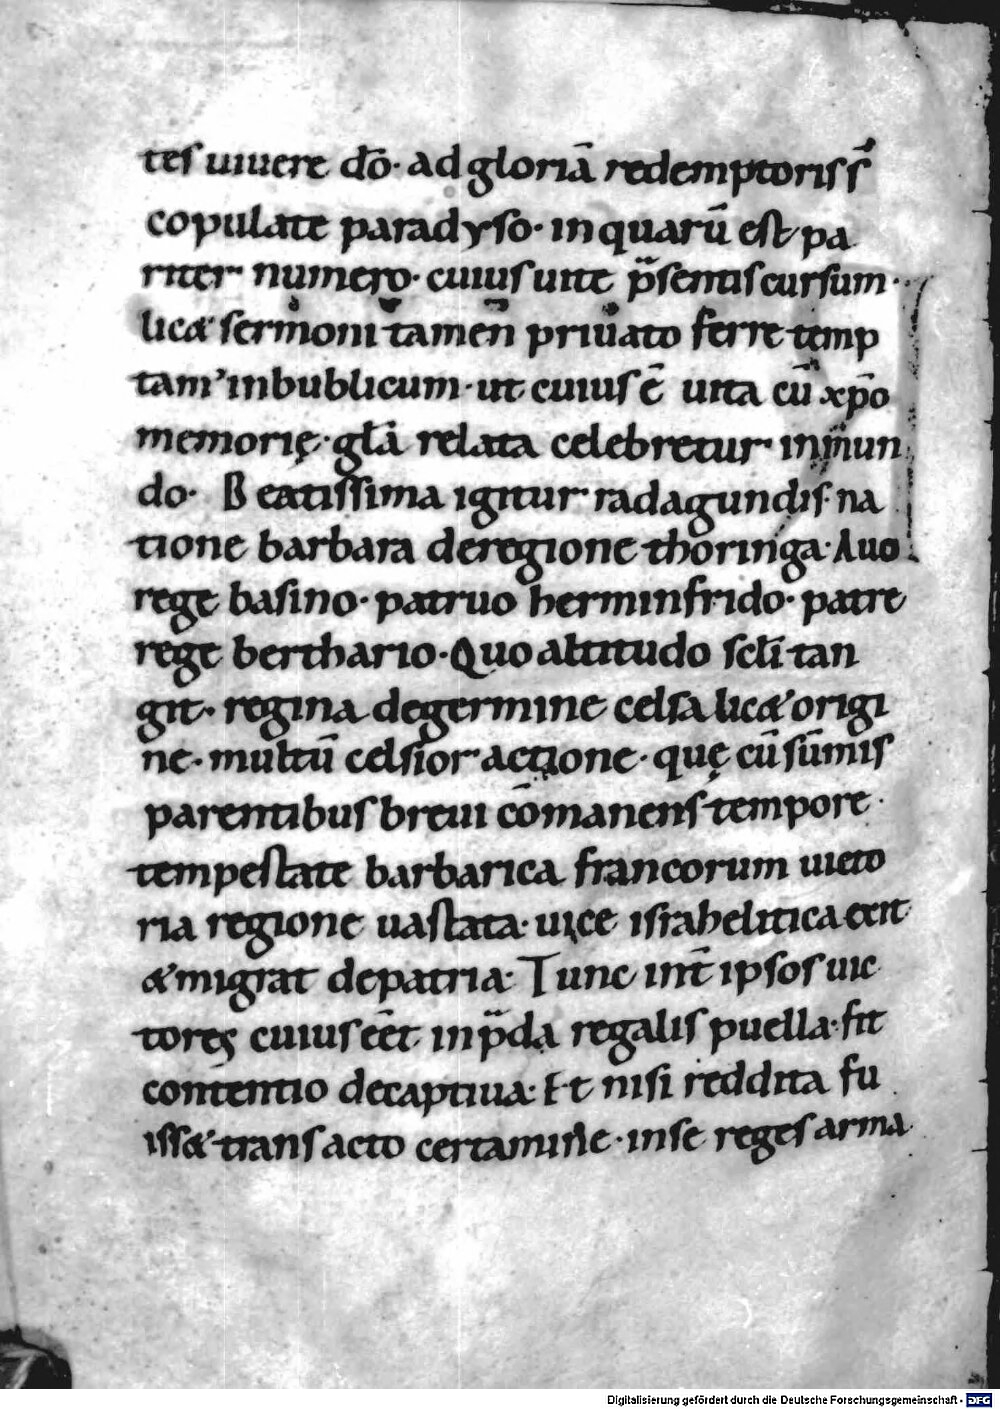 tes uiuere dō· ad gloriā redemptoris s̄
copulate paradyso· in quarū est pa
riter numero· cuius uite p̄sentis cursum·
licet sermoni tamen priuato ferre temp
tam' inbublicum· ut cuius ē uita cū xp̄o
memorię· gl̄a relata celebretur· inmun
do· Beatissima igitur radagundis· na
tione barbara deregione thoringa· Auo
rege basino· patruo herminfrido· patre
rege berthario· Quo altitudo sc̄li tan
git· regina degermine celsa licet origi
ne· multū celsior actione· quę cū sūmis
parentibus breui cōmanens tempore·
tempestate barbarica francorum uicto
ria regione uastata· uice israhelitica exit
et migrat depatria· Tunc int̄ ipsos uic
tores cuius eēt inp̄da regalis puella· fit
contentio decaptiua· Et nisi reddita fu
isset transacto certamine· inse reges arma
Digitalisierung gefördert durch die Deutsche Forschungsgemeinschaft - DFG